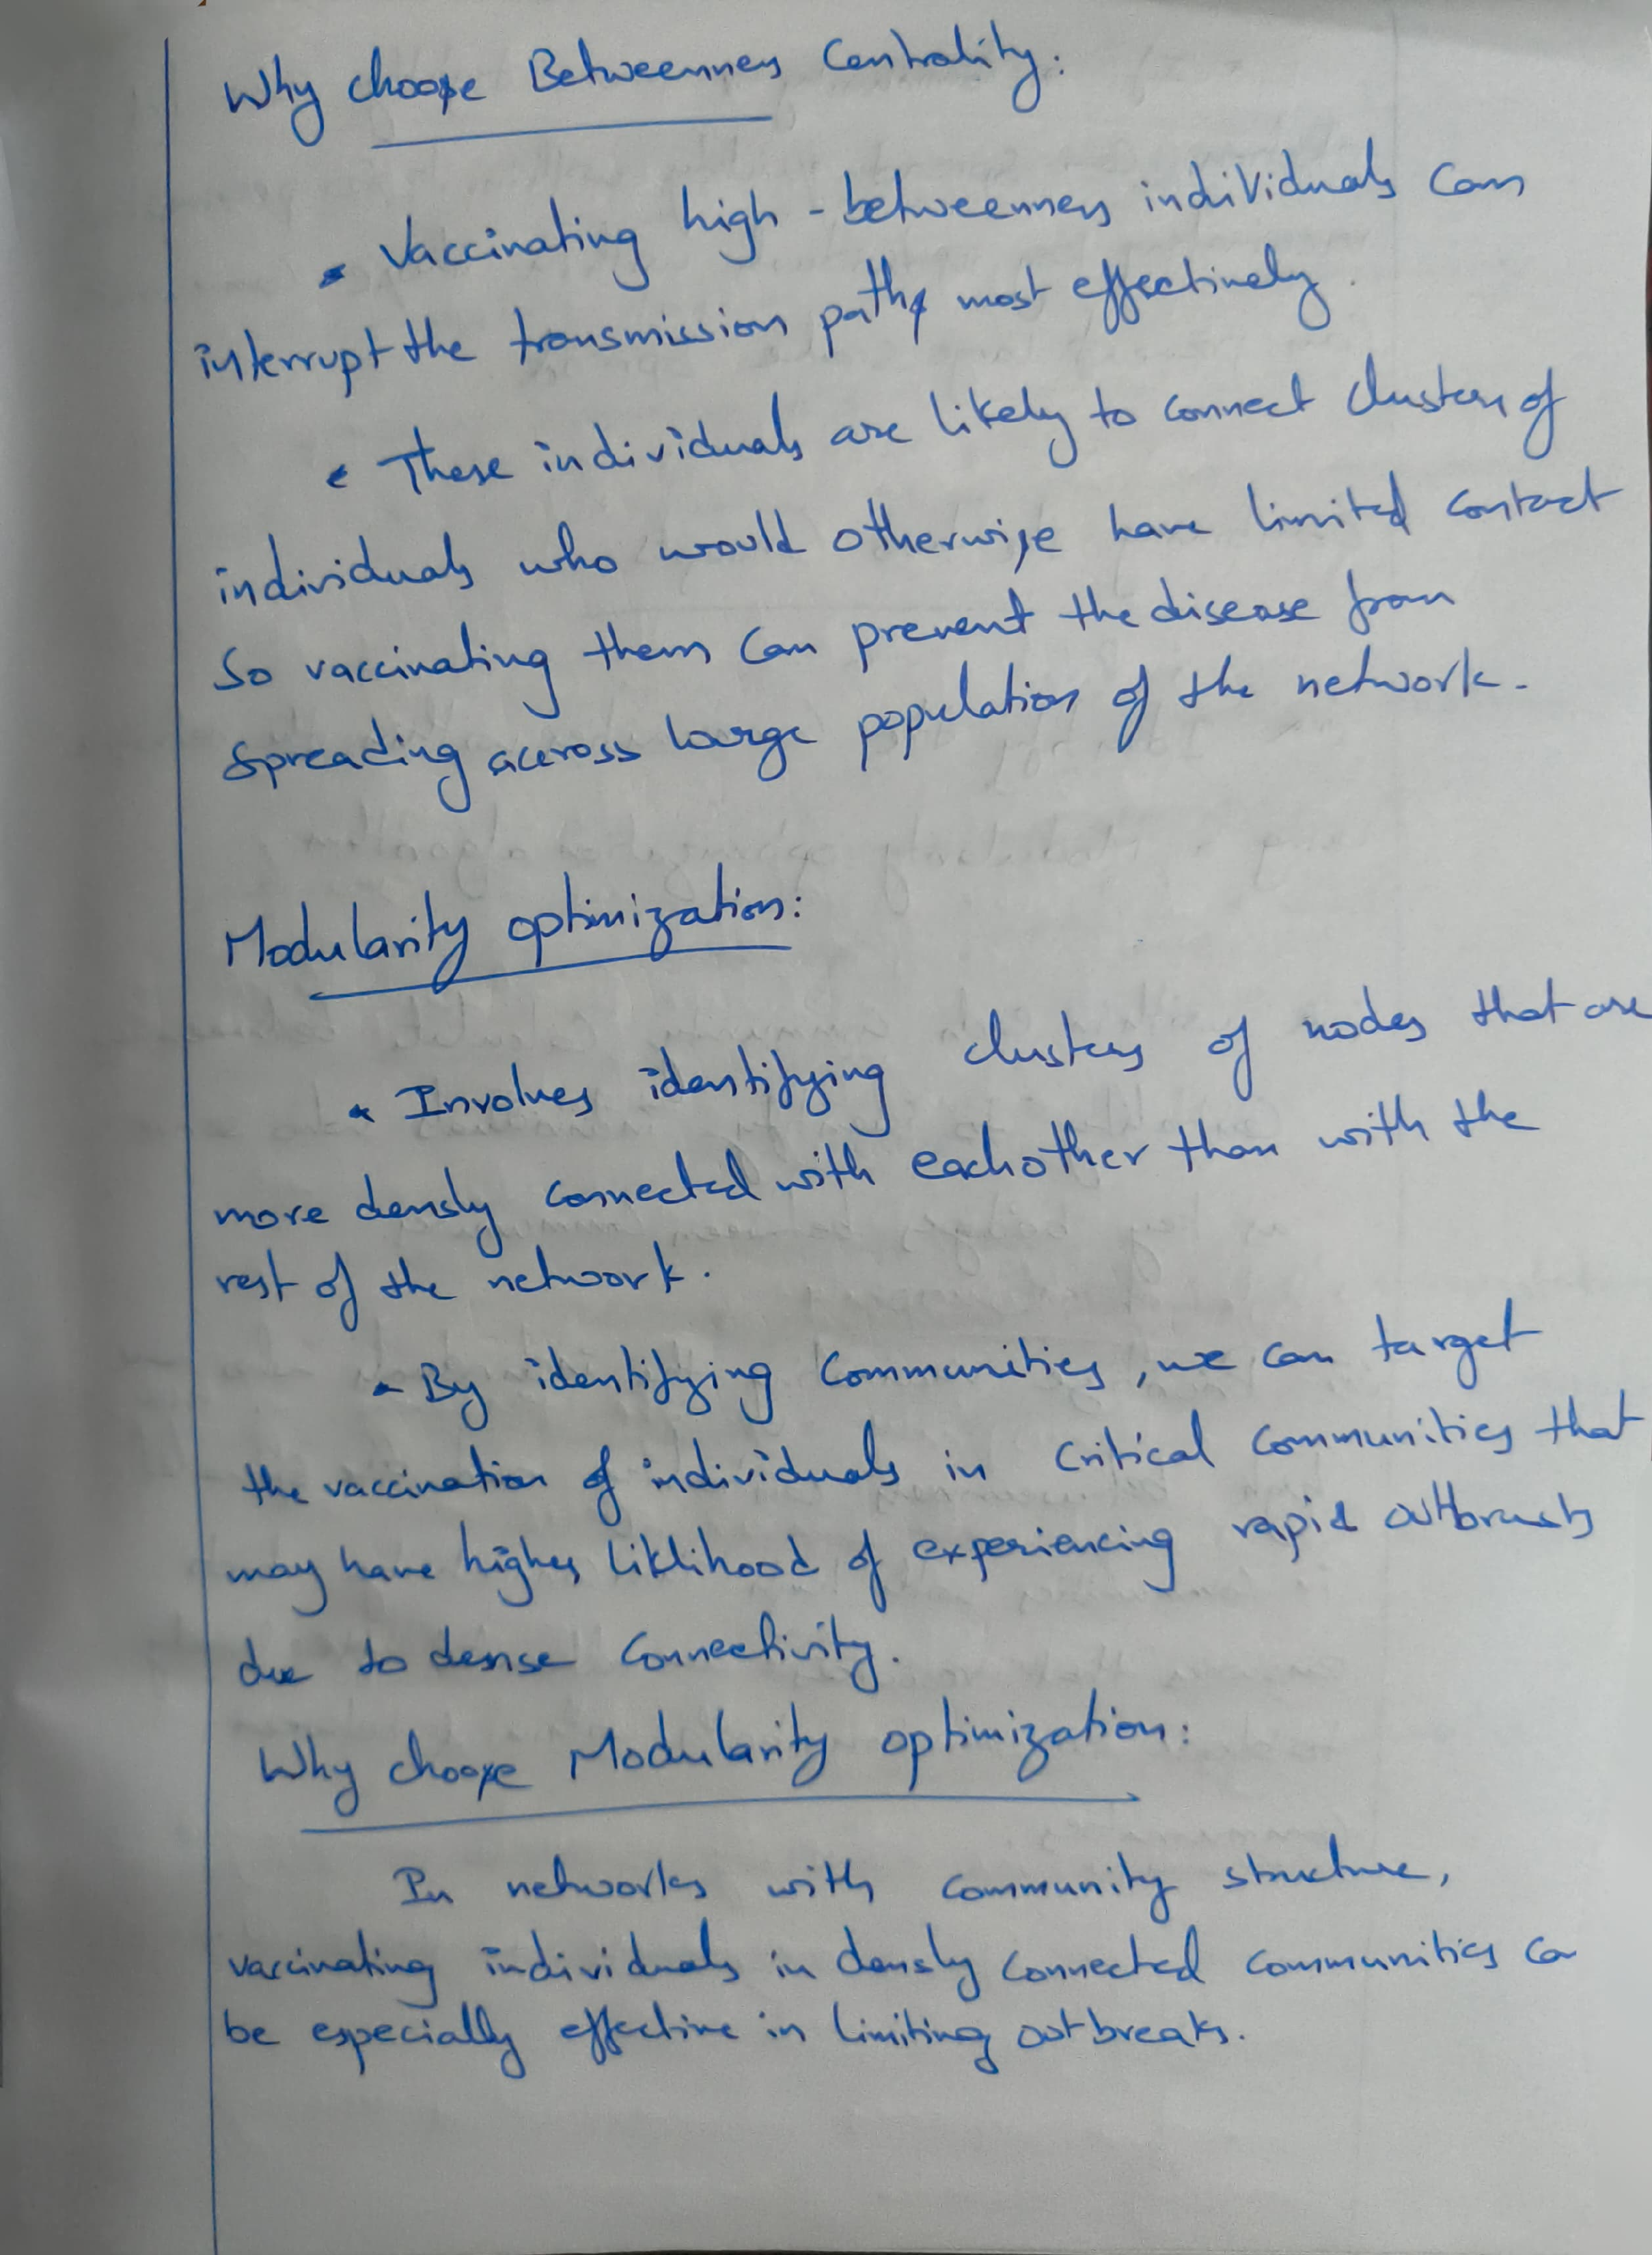 Why choose Betweenness Centrality:
• Vaccinating high - betweenness individuals can
interrupt the transmission paths most effectively.
• These individuals are likely to connect clusters of
individuals who would otherwise have limited contact
So vaccinating them can prevent the disease from
spreading aceross large population of the network.
Modularity optimization:
• Involves identifying clusters of nodes that are
more densly connected with eachother than with the
rest of the network.
• By identifying communities, we can target
the vaccination of individuals in critical communities that
may have higher liklihood of experiencing rapid
due to dense connectivity.
Why choose Modularity optimization:
In networks with community structure,
vaccinating individuals in densly connected communities ca
be especially effective in limiting outbreaks.